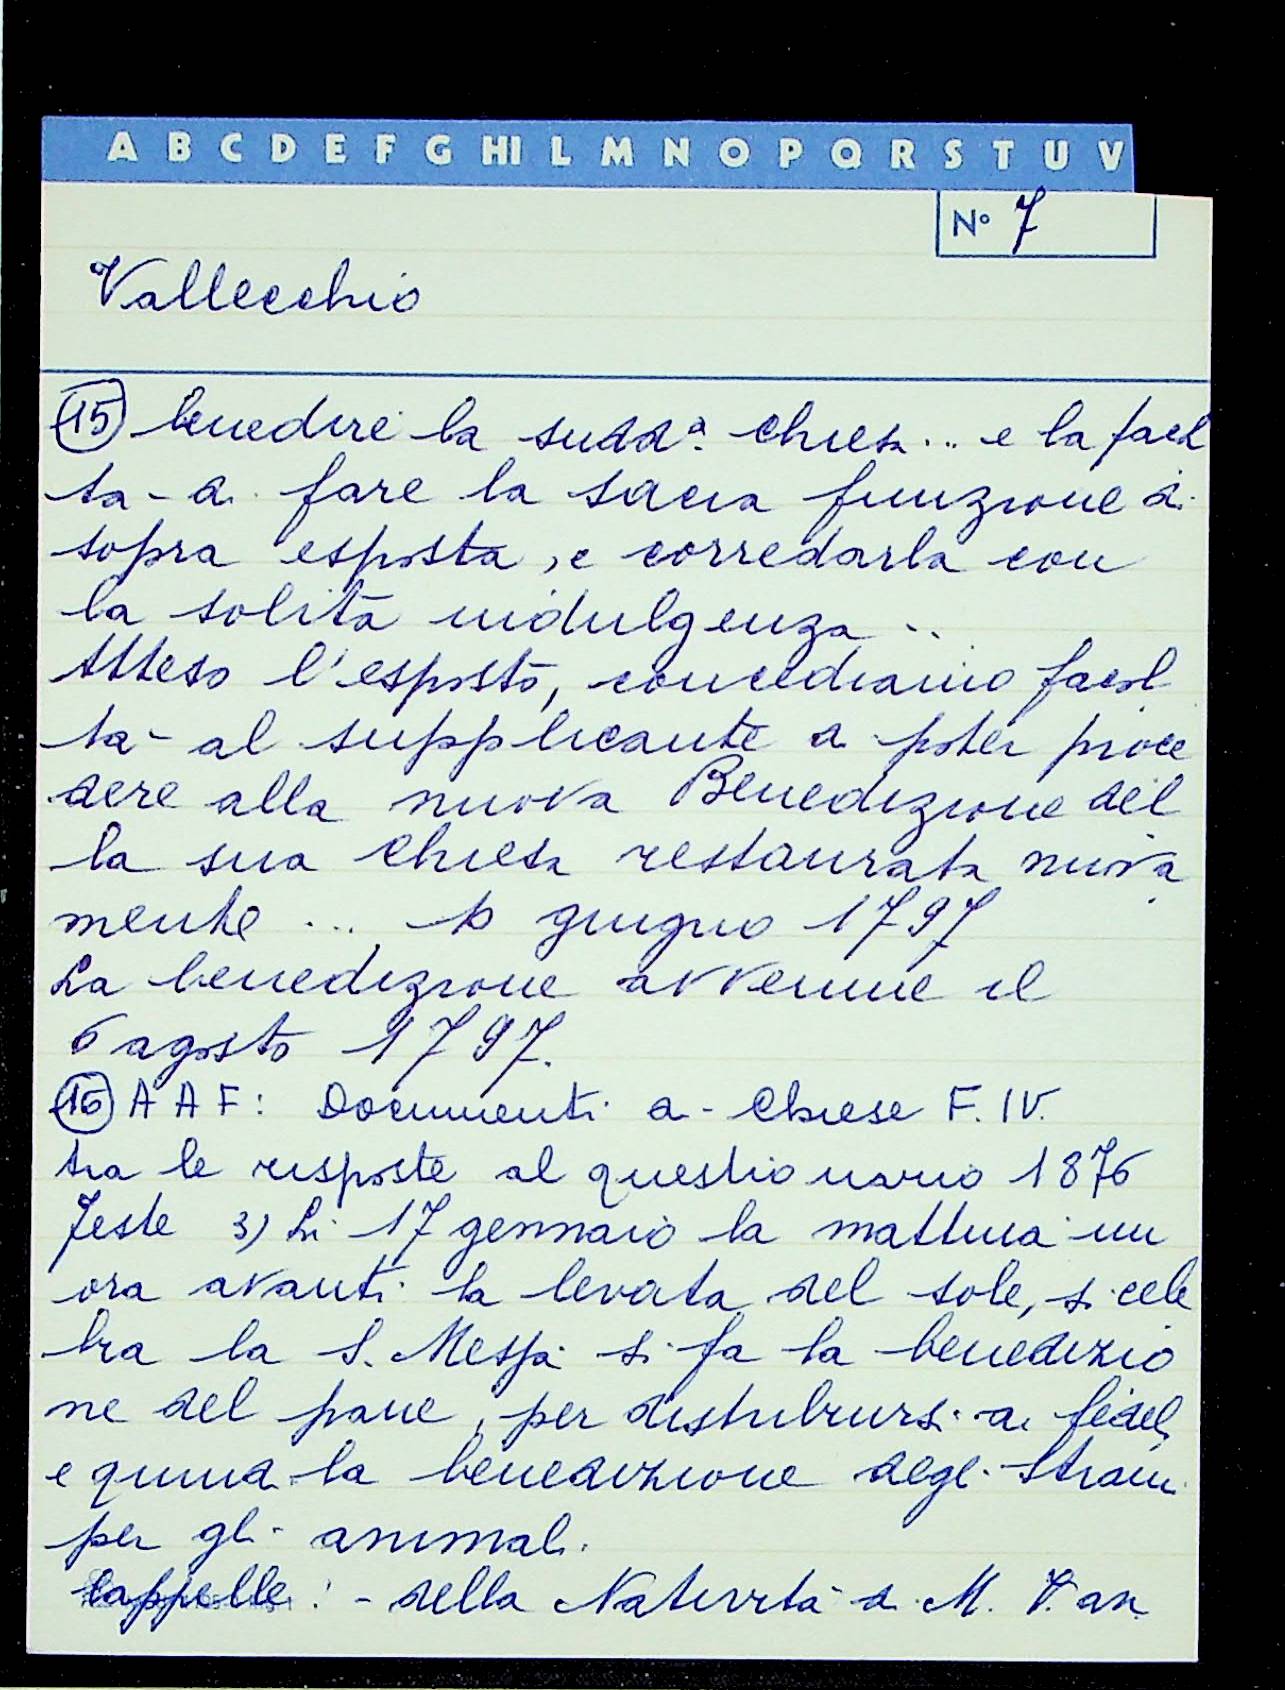 A B C D E F G HI L M N O P Q R S T U V
N° 7
Vallecchio
(15) benedire la sudd.ª chiesa ... e la facol
tà di fare la sacra funzione di
sopra esposta, e corredarla con
la solita indulgenza ..
Atteso l'esposto, concediamo facol
tà al supplicante di poter proce
dere alla nuova Benedizione del
la sua chiesa restaurata nuova
mente ..., 10 giugno 1797
La benedizione avvenne il
6 agosto 1797.
(16) A A F: Documenti di Chiese F. IV.
tra le risposte al questionario 1876
Feste 3) Li 17 gennaio la mattina un
ora avanti la levata del sole, si cele
bra la S. Messa si fa la benedizio
ne del pane, per distribuirsi ai fedeli
e quindi la benedizione degli strami
per gli animali.
Cappelle: - della Natività di M. V. an